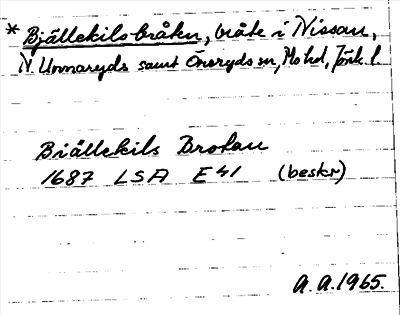 * Bjällekilsbråken, bråte i Nissan,
N Unnaryds samt Öreryds sn, Mo hd, Jönk. l.
Biällekils Brokan
1687 LSA E41 (beskr)
A.A. 1965.